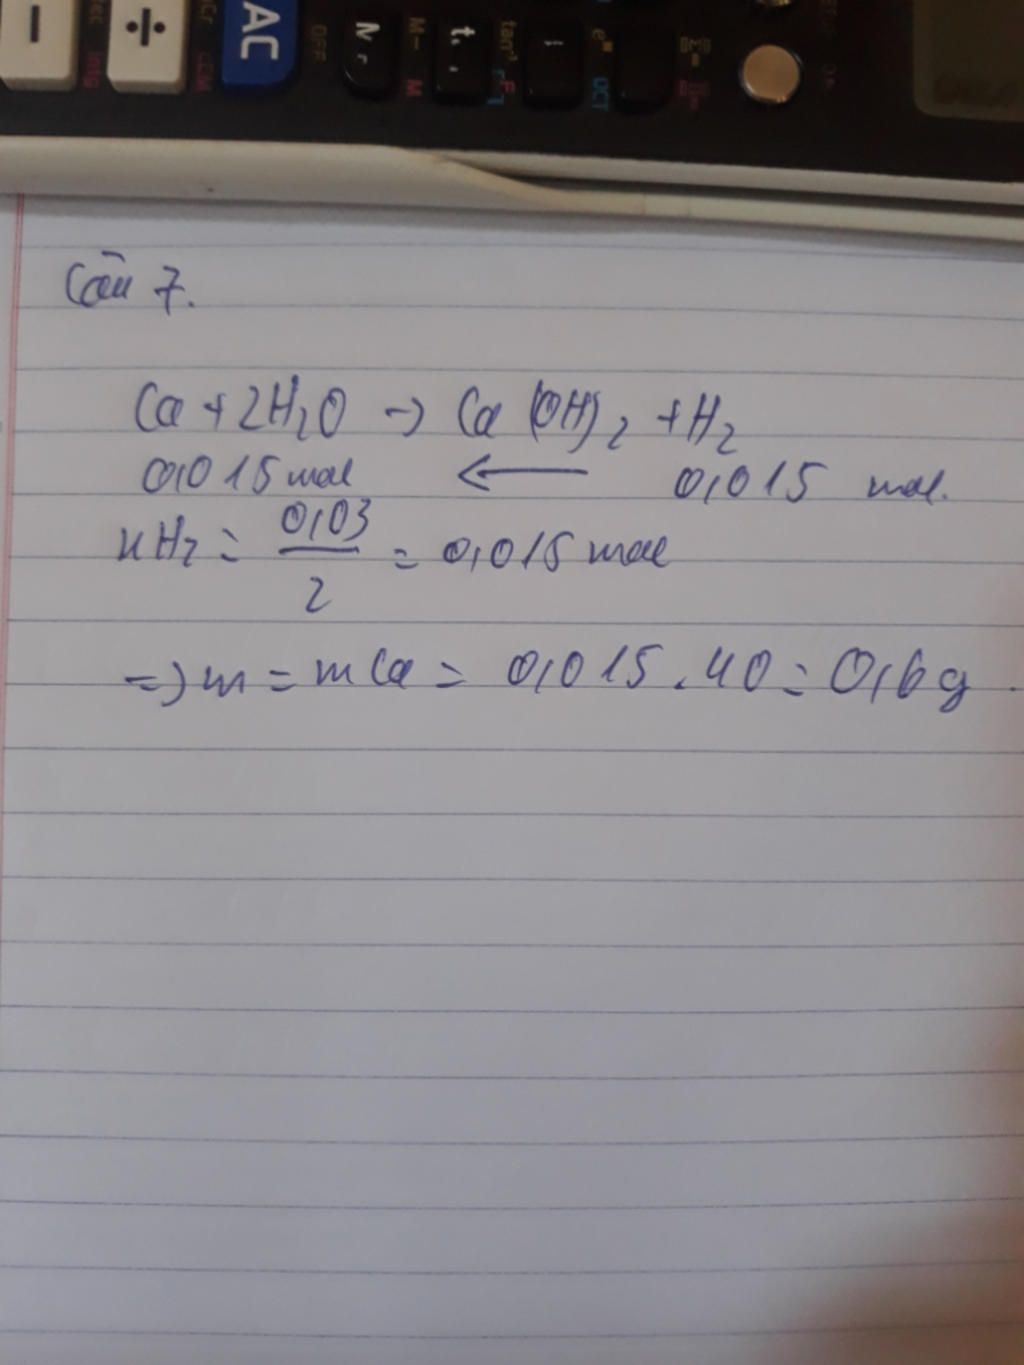 AC
÷
-
OFF
M-
M
tan⁻¹
OCT
Câu 7.
Ca + 2H₂O → Ca(OH)₂ + H₂
0,015 mol ← 0,015 mol.
nH₂ = 0,03/2 = 0,015 mol
=> m = mCa = 0,015 . 40 = 0,6g.